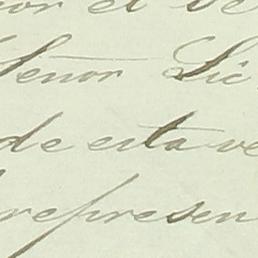 por el Se
Señor Lic
de esta ve
represen